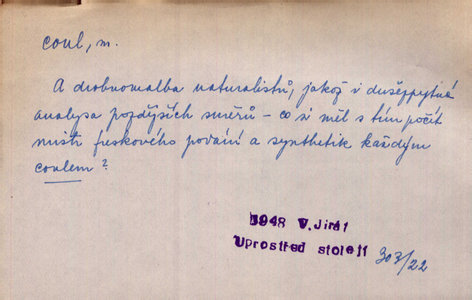 coul, m.
A drobnomalba naturalistů, jakož i dušezpytná
analysa pozdějších směrů – co si měl s tím počít
mistr freskového podání a synthetik každým
coulem?
1948 V. Jirát
Uprostřed století
303/22